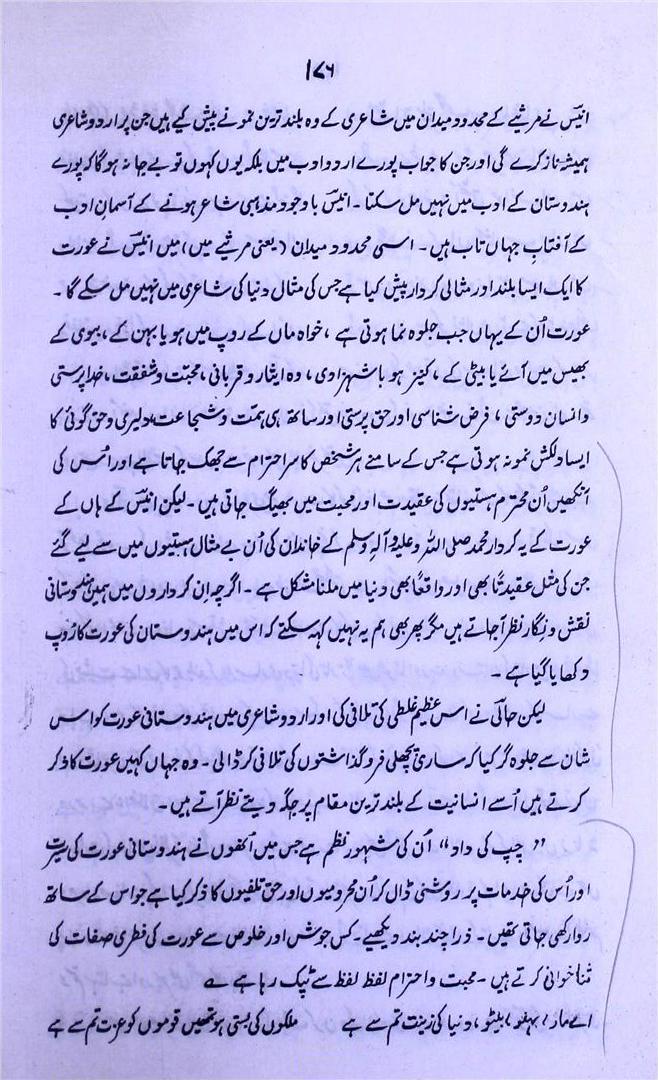 ۱۷۶
انیسؔ نے مرثیے کے محدود میدان میں شاعری کے وہ بلند ترین نمونے پیش کیے ہیں جن پر اردو شاعری
ہمیشہ ناز کرے گی اور جن کا جواب پورے اردو ادب میں بلکہ یوں کہوں تو بے جا نہ ہوگا کہ پورے
ہندوستان کے ادب میں نہیں مل سکتا ۔ انیسؔ باوجود مذہبی شاعر ہونے کے آسمانِ ادب
کے آفتابِ جہاں تاب ہیں ۔ اسی محدود میدان (یعنی مرثیے میں) میں انیسؔ نے عورت
کا ایک ایسا بلند اور مثالی کردار پیش کیا ہے جس کی مثال دنیا کی شاعری میں نہیں مل سکے گا ۔
عورت اُن کے یہاں جب جلوہ نما ہوتی ہے ، خواہ ماں کے روپ میں ہو یا بہن کے ، بیوی کے
بھیس میں آئے یا بیٹی کے ، کنیز ہو یا شہزادی ، وہ ایثار و قربانی ، محبت و شفقت ، خدا پرستی
و انسان دوستی ، فرض شناسی اور حق پرستی اور ساتھ ہی ہمّت و شجاعت ، دلیری و حق گوئی کا
ایسا دلکش نمونہ ہوتی ہے جس کے سامنے ہر شخص کا سر احترام سے جھک جاتا ہے اور اُس کی
آنکھیں اُن محترم ہستیوں کی عقیدت اور محبت میں بھیگ جاتی ہیں ۔ لیکن انیسؔ کے ہاں کے
عورت کے یہ کردار محمد صلی اللہ و علیہ و آلہٖ وسلم کے خاندان کی اُن بے مثال ہستیوں میں سے لیے گئے
جن کی مثل عقیدتًا بھی اور واقعاً بھی دنیا میں ملنا مشکل ہے ۔ اگرچہ اِن کرداروں میں ہمیں ہندوستانی
نقش و نگار نظر آ جاتے ہیں مگر پھر بھی ہم یہ نہیں کہہ سکتے کہ اس میں ہندوستان کی عورت کا رُوپ
دکھایا گیا ہے ۔
لیکن حالیؔ نے اس عظیم غلطی کی تلافی کی اور اردو شاعری میں ہندوستانی عورت کو اس
شان سے جلوہ گر کیا کہ ساری پچھلی فروگذاشتوں کی تلافی کر ڈالی ۔ وہ جہاں کہیں عورت کا ذکر
کرتے ہیں اُسے انسانیت کے بلند ترین مقام پر جگہ دیتے نظر آتے ہیں ۔
” چپ کی داد“ اُن کی مشہور نظم ہے جس میں اُنھوں نے ہندوستانی عورت کی سیرت
اور اُس کی خدمات پر روشنی ڈال کر اُن محرومیوں اور حق تلفیوں کا ذکر کیا ہے جو اس کے ساتھ
روا رکھی جاتی تھیں ۔ ذرا چند بند دیکھیے ۔ کس جوش اور خلوص سے عورت کی فطری صفات کی
ثنا خوانی کرتے ہیں ۔ محبت و احترام لفظ لفظ سے ٹپک رہا ہے ؎
اے ماؤ ، بہنو ، بیٹیو ، دنیا کی زینت تم سے ہے ملکوں کی بستی ہو تمھیں قوموں کو عزت تم سے ہے